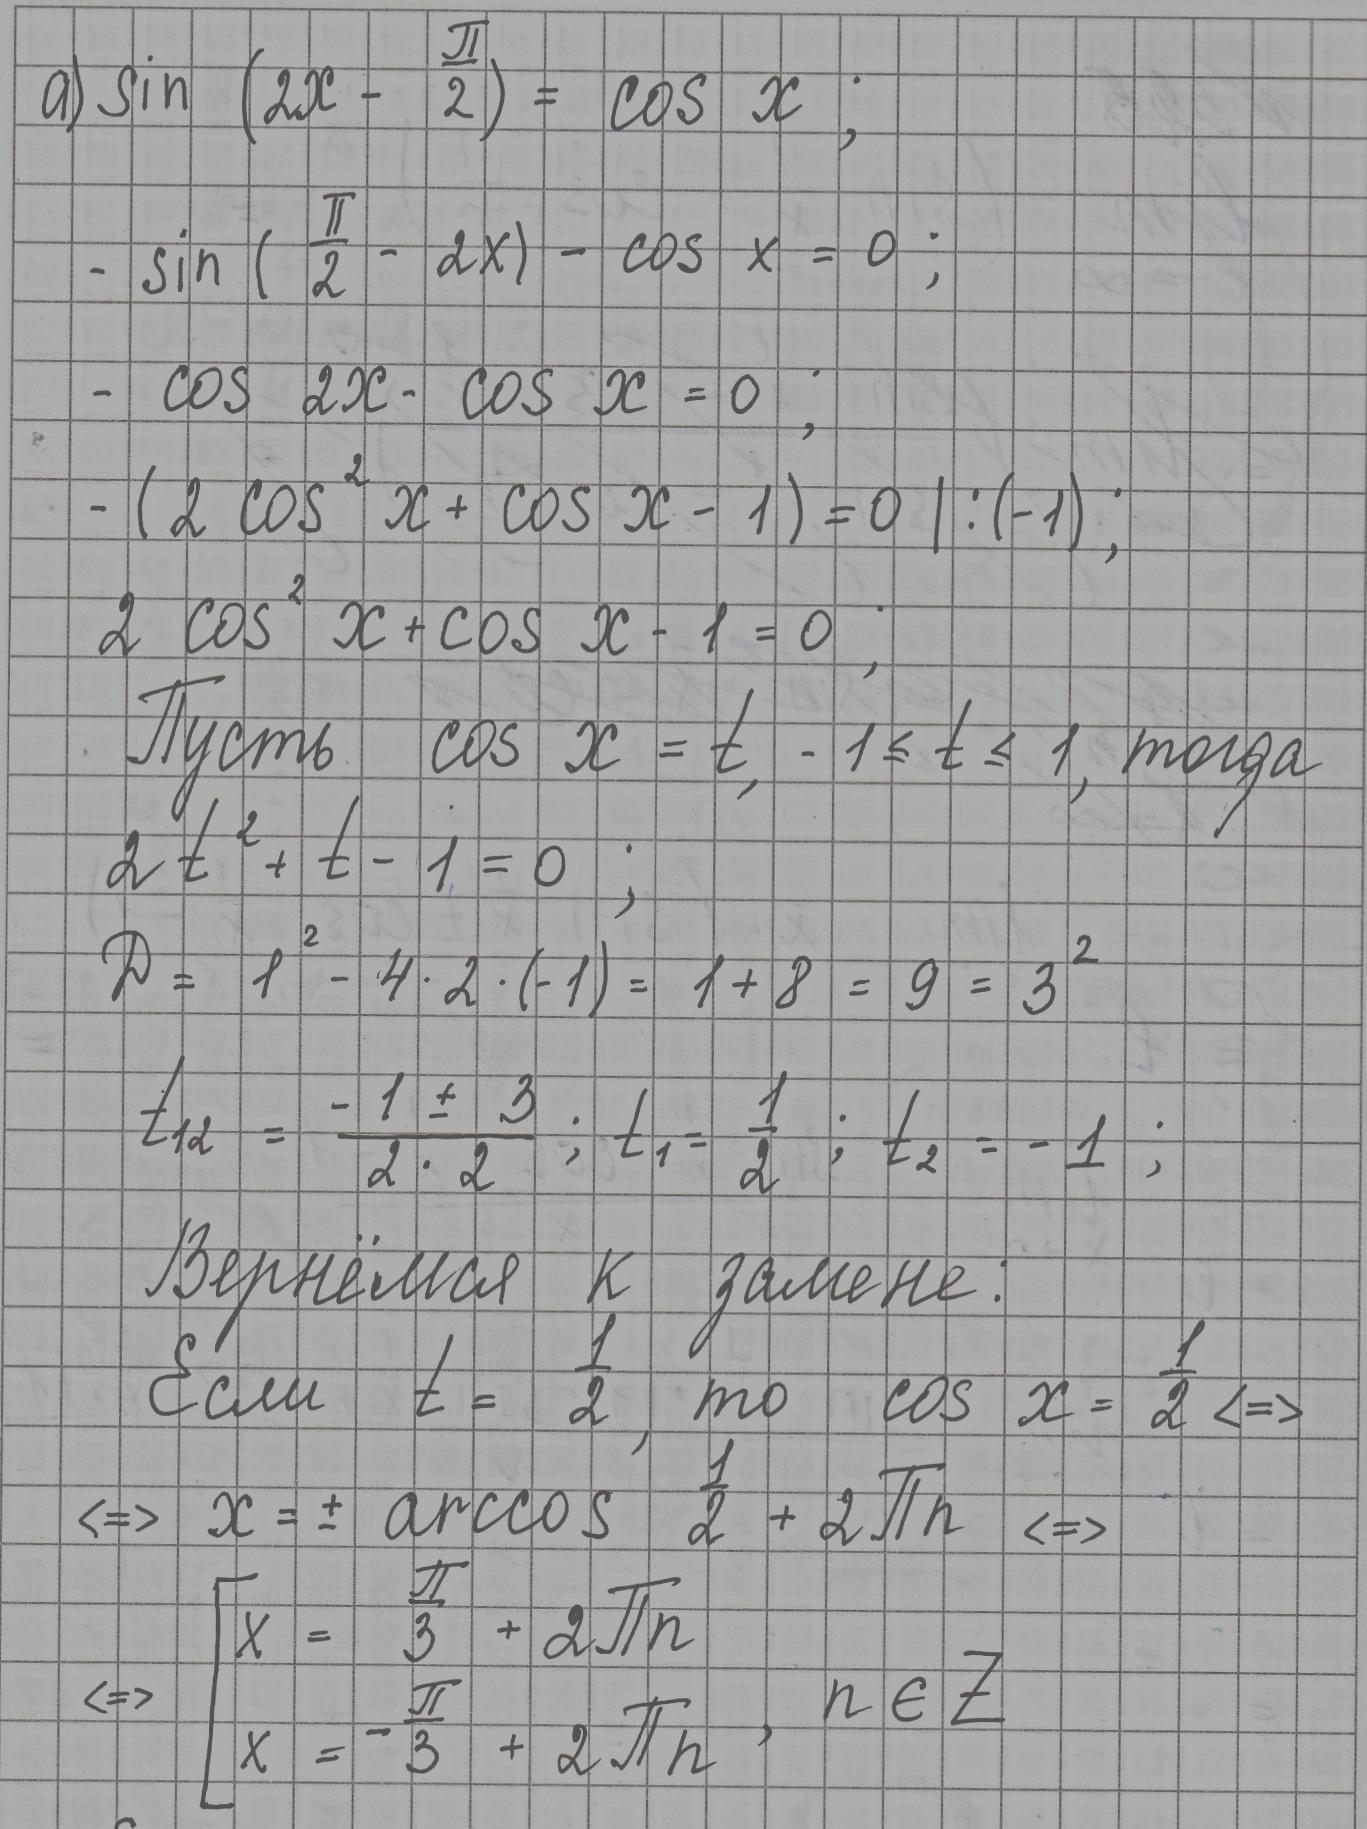 а) sin (2x - π/2) = cos x ;
- sin (π/2 - 2x) - cos x = 0 ;
- cos 2x - cos x = 0 ;
- (2 cos² x + cos x - 1) = 0 | : (-1) ;
2 cos² x + cos x - 1 = 0 ;
Пусть cos x = t, -1 ≤ t ≤ 1, тогда
2t² + t - 1 = 0 ;
D = 1² - 4 · 2 · (-1) = 1 + 8 = 9 = 3²
t₁₂ = (-1 ± 3)/(2 · 2) ; t₁ = 1/2 ; t₂ = -1 ;
Вернёмся к замене:
Если t = 1/2, то cos x = 1/2 <=>
<=> x = ± arccos 1/2 + 2πn <=>
<=> [ x = π/3 + 2πn
x = -π/3 + 2πn , n ∈ Z